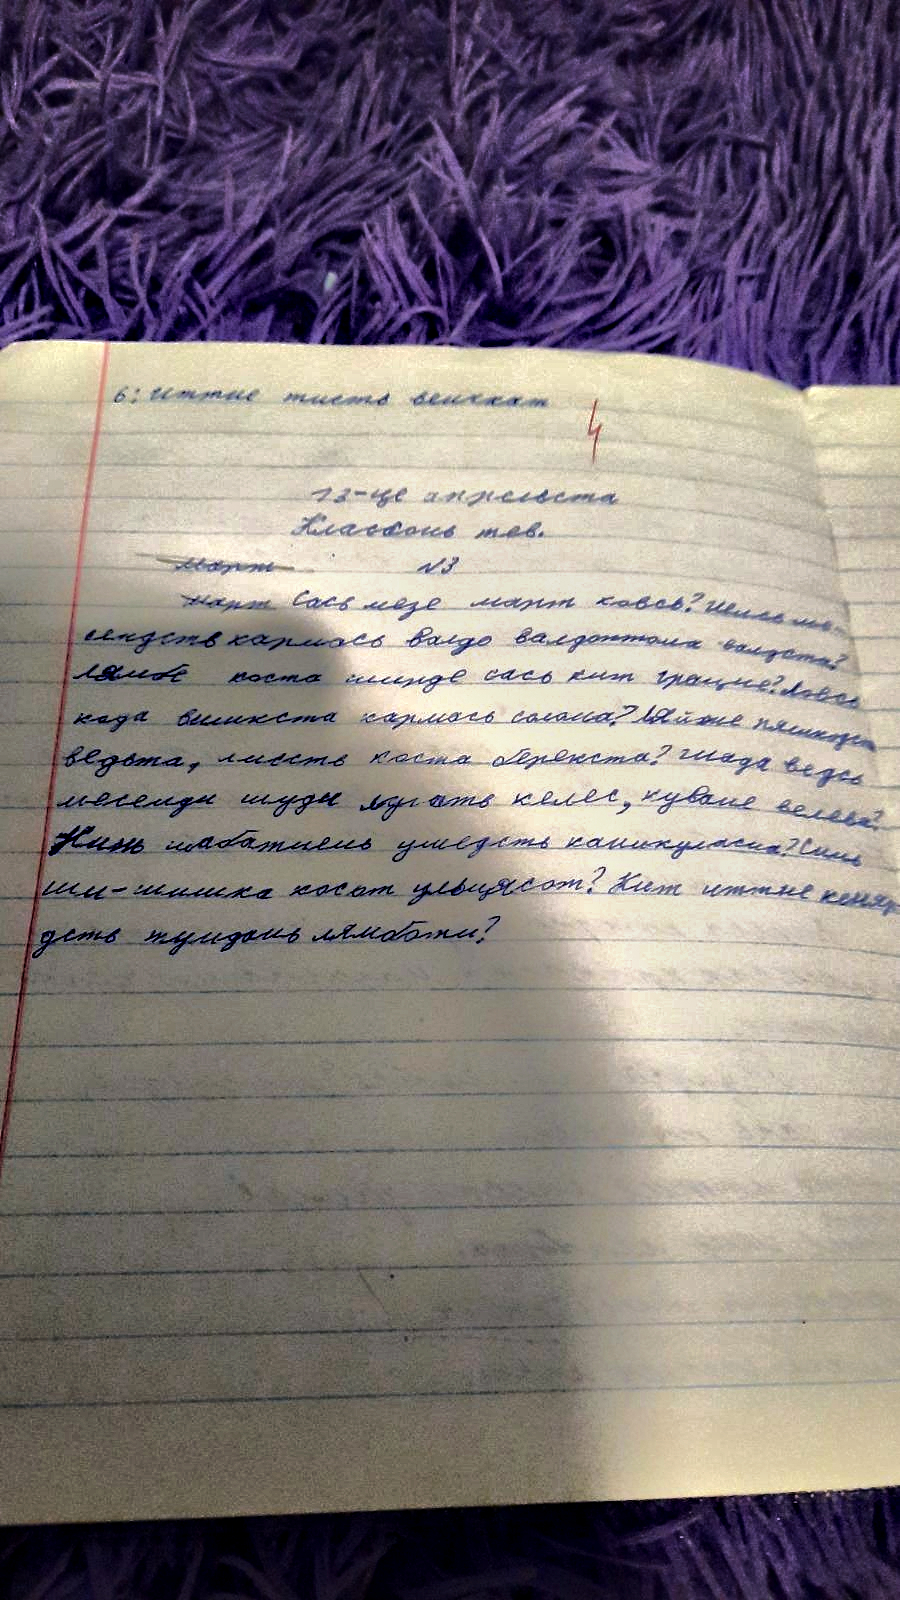 6: иттне тисть
13-це апрельста
Классонь тев.
март №3
март Сась мезе март ковсь? Шись ме-
сендсть кармась валдо валдоптома валдста?
Лямбе коста шинде сась кит грацне? Ловсь
кода виикста кармась солама? Ляйхне пяшкодст
ведьта, лиссть коста берекста? Шада ведсь
месенди шуди лугать келес, куване велева?
Кинь шабатнень умедсть каникуласна? Синь
ши-шишка косот ульцясот? Кит иттне кеняр-
дсть тундонь лямботи?